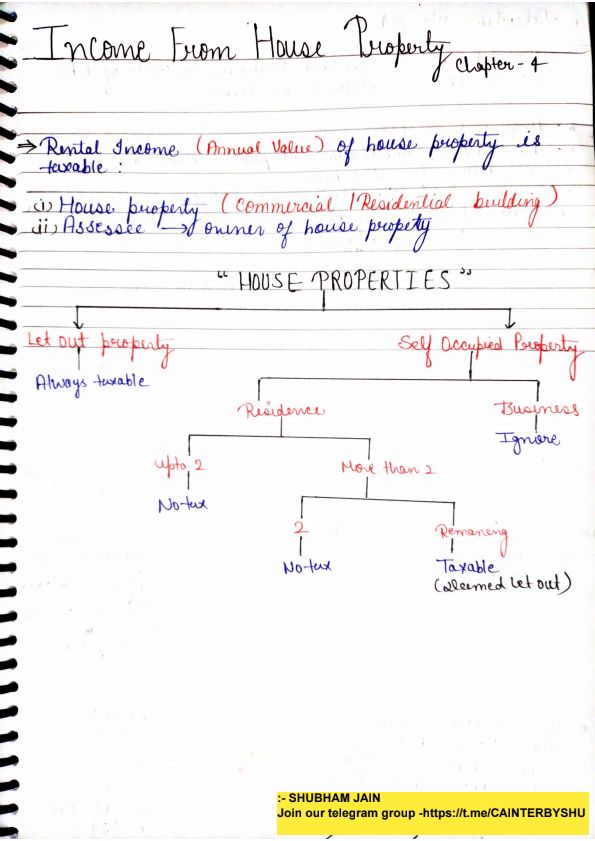 Income From House Property
Chapter - 4
⇒ Rental Income (Annual Value) of house property is
taxable :
(i) House property (Commercial / Residential building)
(ii) Assessee → owner of house property
" HOUSE PROPERTIES "
Let out property
Self Occupied Property
Always taxable
Residence
Business
Ignore
upto 2
More than 2
No tax
2
Remaning
No tax
Taxable
(Deemed let out)
:- SHUBHAM JAIN
Join our telegram group -https://t.me/CAINTERBYSHU